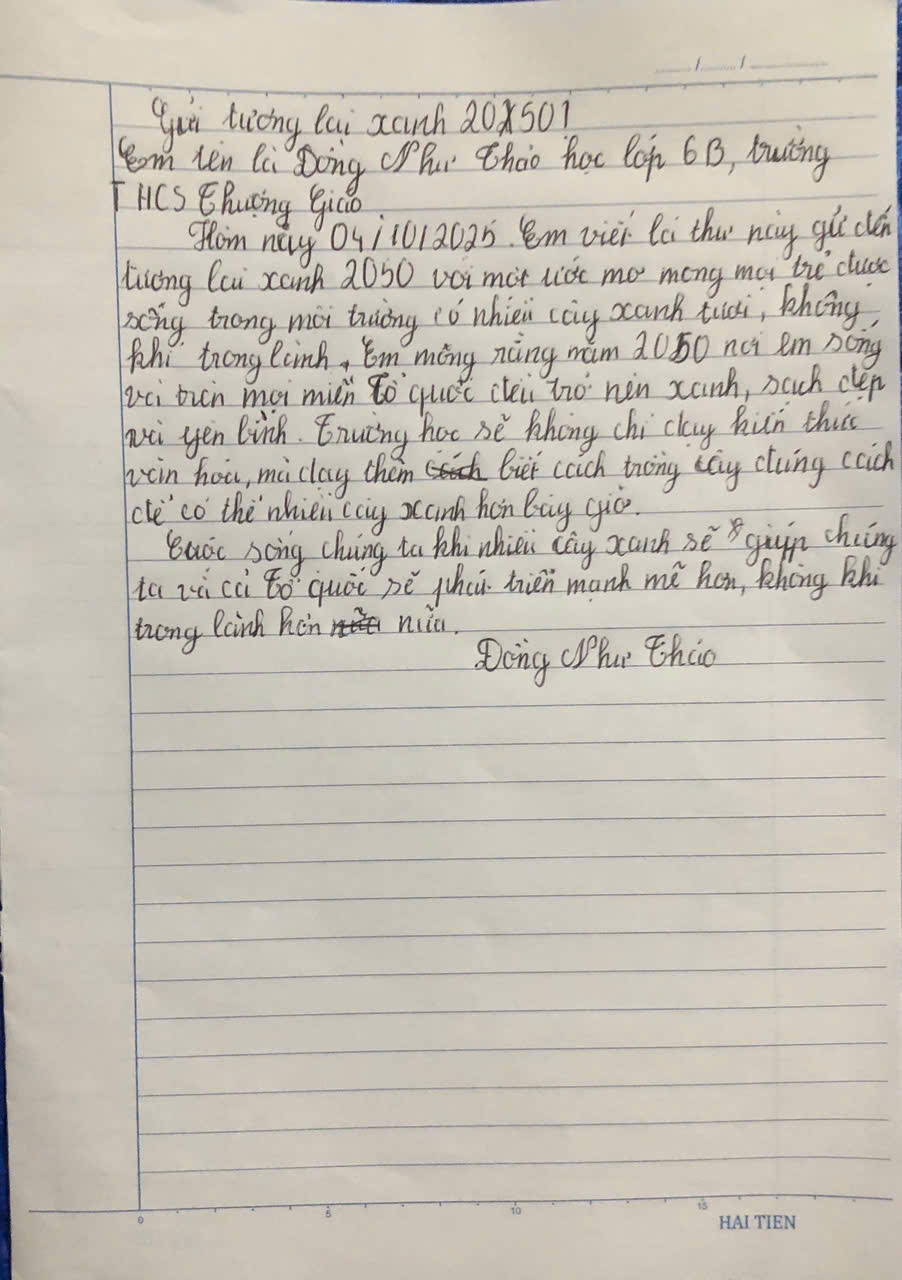 / /
Gửi tương lai xanh 20501
Em tên là Dòng Như Thảo học lớp 6B, trường
THCS Thượng Giáo
Hôm nay 04/10/2025. Em viết lá thư này gửi đến
tương lai xanh 2050 với một ước mơ mong mọi trẻ được
sống trong môi trường có nhiều cây xanh tươi, không
khí trong lành. Em mong rằng năm 2050 nơi em sống
và trên mọi miền Tổ quốc đều trở nên xanh, sạch đẹp
và yên bình. Trường học sẽ không chỉ dạy kiến thức
văn hóa, mà dạy thêm biết cách trồng cây đúng cách
để có thể nhiều cây xanh hơn bây giờ.
Cuộc sống chúng ta khi nhiều cây xanh sẽ giúp chúng
ta và cả Tổ quốc sẽ phát triển mạnh mẽ hơn, không khí
trong lành hơn nữa.
Dòng Như Thảo
0 5 10 15
HAI TIEN